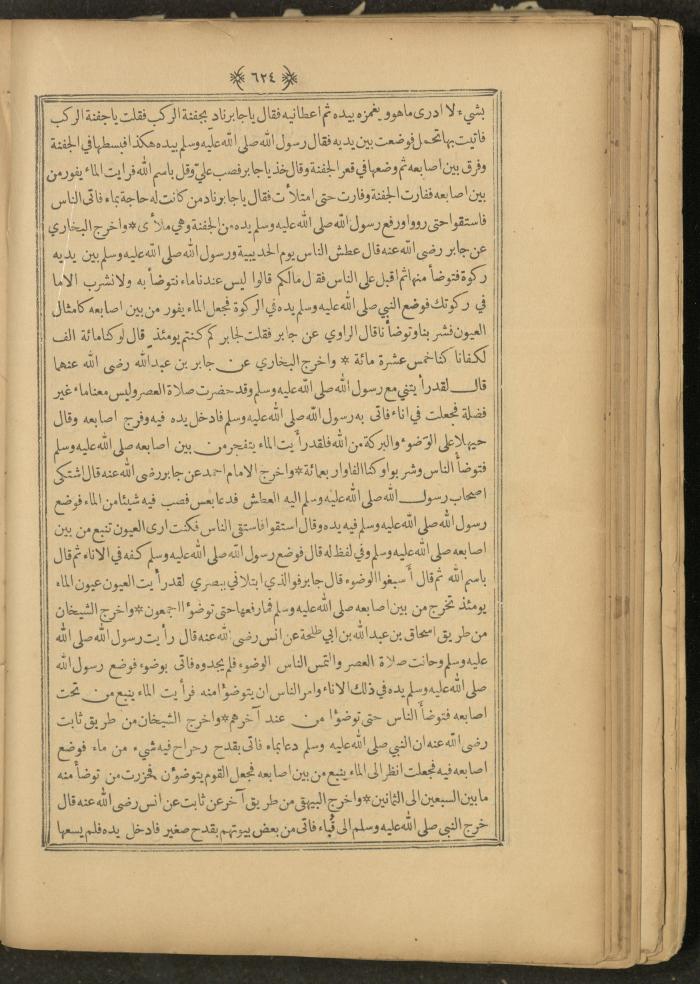 ٦٢٤
بشيء لا ادري ماهو ويغمزه بيده ثم اعطانيه فقال ياجابر ناد بجفنة الركب فقلت ياجفنة الركب
فاتيت بها تحمل فوضعت بين يديه فقال رسول الله صلى الله عليه وسلم بيده هكذا فبسطها في الجفنة
وفرق بين اصابعه ثم وضعها في قعر الجفنة وقال خذ ياجابر فصب عليّ وقل باسم الله فرايت الماء يفور من
بين اصابعه ففارت الجفنة وفارت حتى امتلأت فقال ياجابر ناد من كانت له حاجة بماء فاتى الناس
فاستقوا حتى رووا ورفع رسول الله صلى الله عليه وسلم يده من الجفنة وهي ملأى * واخرج البخاري
عن جابر رضى الله عنه قال عطش الناس يوم الحديبية ورسول الله صلى الله عليه وسلم بين يديه
ركوة فتوضأ منها ثم اقبل على الناس فقال مالكم قالوا ليس عندنا ماء نتوضأ به ولا نشرب الا ما
في ركوتك فوضع النبي صلى الله عليه وسلم يده في الركوة فجعل الماء يفور من بين اصابعه كامثال
العيون فشربنا وتوضأنا قال الراوي عن جابر فقلت لجابر كم كنتم يومئذ قال لو كنا مائة الف
لكفانا كنا خمس عشرة مائة * واخرج البخاري عن جابر بن عبد الله رضى الله عنهما
قال لقد رأيتني مع رسول الله صلى الله عليه وسلم وقد حضرت صلاة العصر وليس معنا ماء غير
فضلة فجعلت في اناء فاتى به رسول الله صلى الله عليه وسلم فادخل يده فيه وفرج اصابعه وقال
حيهلا على الوضوء والبركة من الله فلقد رأيت الماء يتفجر من بين اصابعه صلى الله عليه وسلم
فتوضأ الناس وشربوا وكنا الفا واربعمائة * واخرج الامام احمد عن جابر رضى الله عنه قال اشتكى
اصحاب رسول الله صلى الله عليه وسلم اليه العطش فدعا بعس فصب فيه شيئا من الماء فوضع
رسول الله صلى الله عليه وسلم فيه يده وقال استقوا فاستقى الناس فكنت ارى العيون تنبع من بين
اصابعه صلى الله عليه وسلم وفي لفظ له قال فوضع رسول الله صلى الله عليه وسلم كفه في الاناء ثم قال
باسم الله ثم قال أسبغوا الوضوء قال جابر فوالذي ابتلاني ببصري لقد رأيت العيون عيون الماء
يومئذ تخرج من بين اصابعه صلى الله عليه وسلم فما رفعها حتى توضؤا اجمعون * واخرج الشيخان
من طريق اسحاق بن عبد الله بن ابي طلحة عن انس رضى الله عنه قال رأيت رسول الله صلى الله
عليه وسلم وحانت صلاة العصر والتمس الناس الوضوء فلم يجدوه فاتى بوضوء فوضع رسول الله
صلى الله عليه وسلم يده في ذلك الاناء وامر الناس ان يتوضؤا منه فرأيت الماء ينبع من تحت
اصابعه فتوضأ الناس حتى توضؤا من عند آخرهم * واخرج الشيخان من طريق ثابت
رضى الله عنه ان النبي صلى الله عليه وسلم دعا بماء فاتى بقدح رحراح فيه شيء من ماء فوضع
اصابعه فيه فجعلت انظر الى الماء ينبع من بين اصابعه فجعل القوم يتوضؤن فحزرت من توضأ منه
ما بين السبعين الى الثمانين * واخرج البيهقي من طريق آخر عن ثابت عن انس رضى الله عنه قال
خرج النبي صلى الله عليه وسلم الى قُباء فاتى من بعض بيوتهم بقدح صغير فادخل يده فلم يسعها